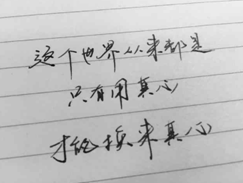 这个世界从来都是
只有用真心
才能换来真心